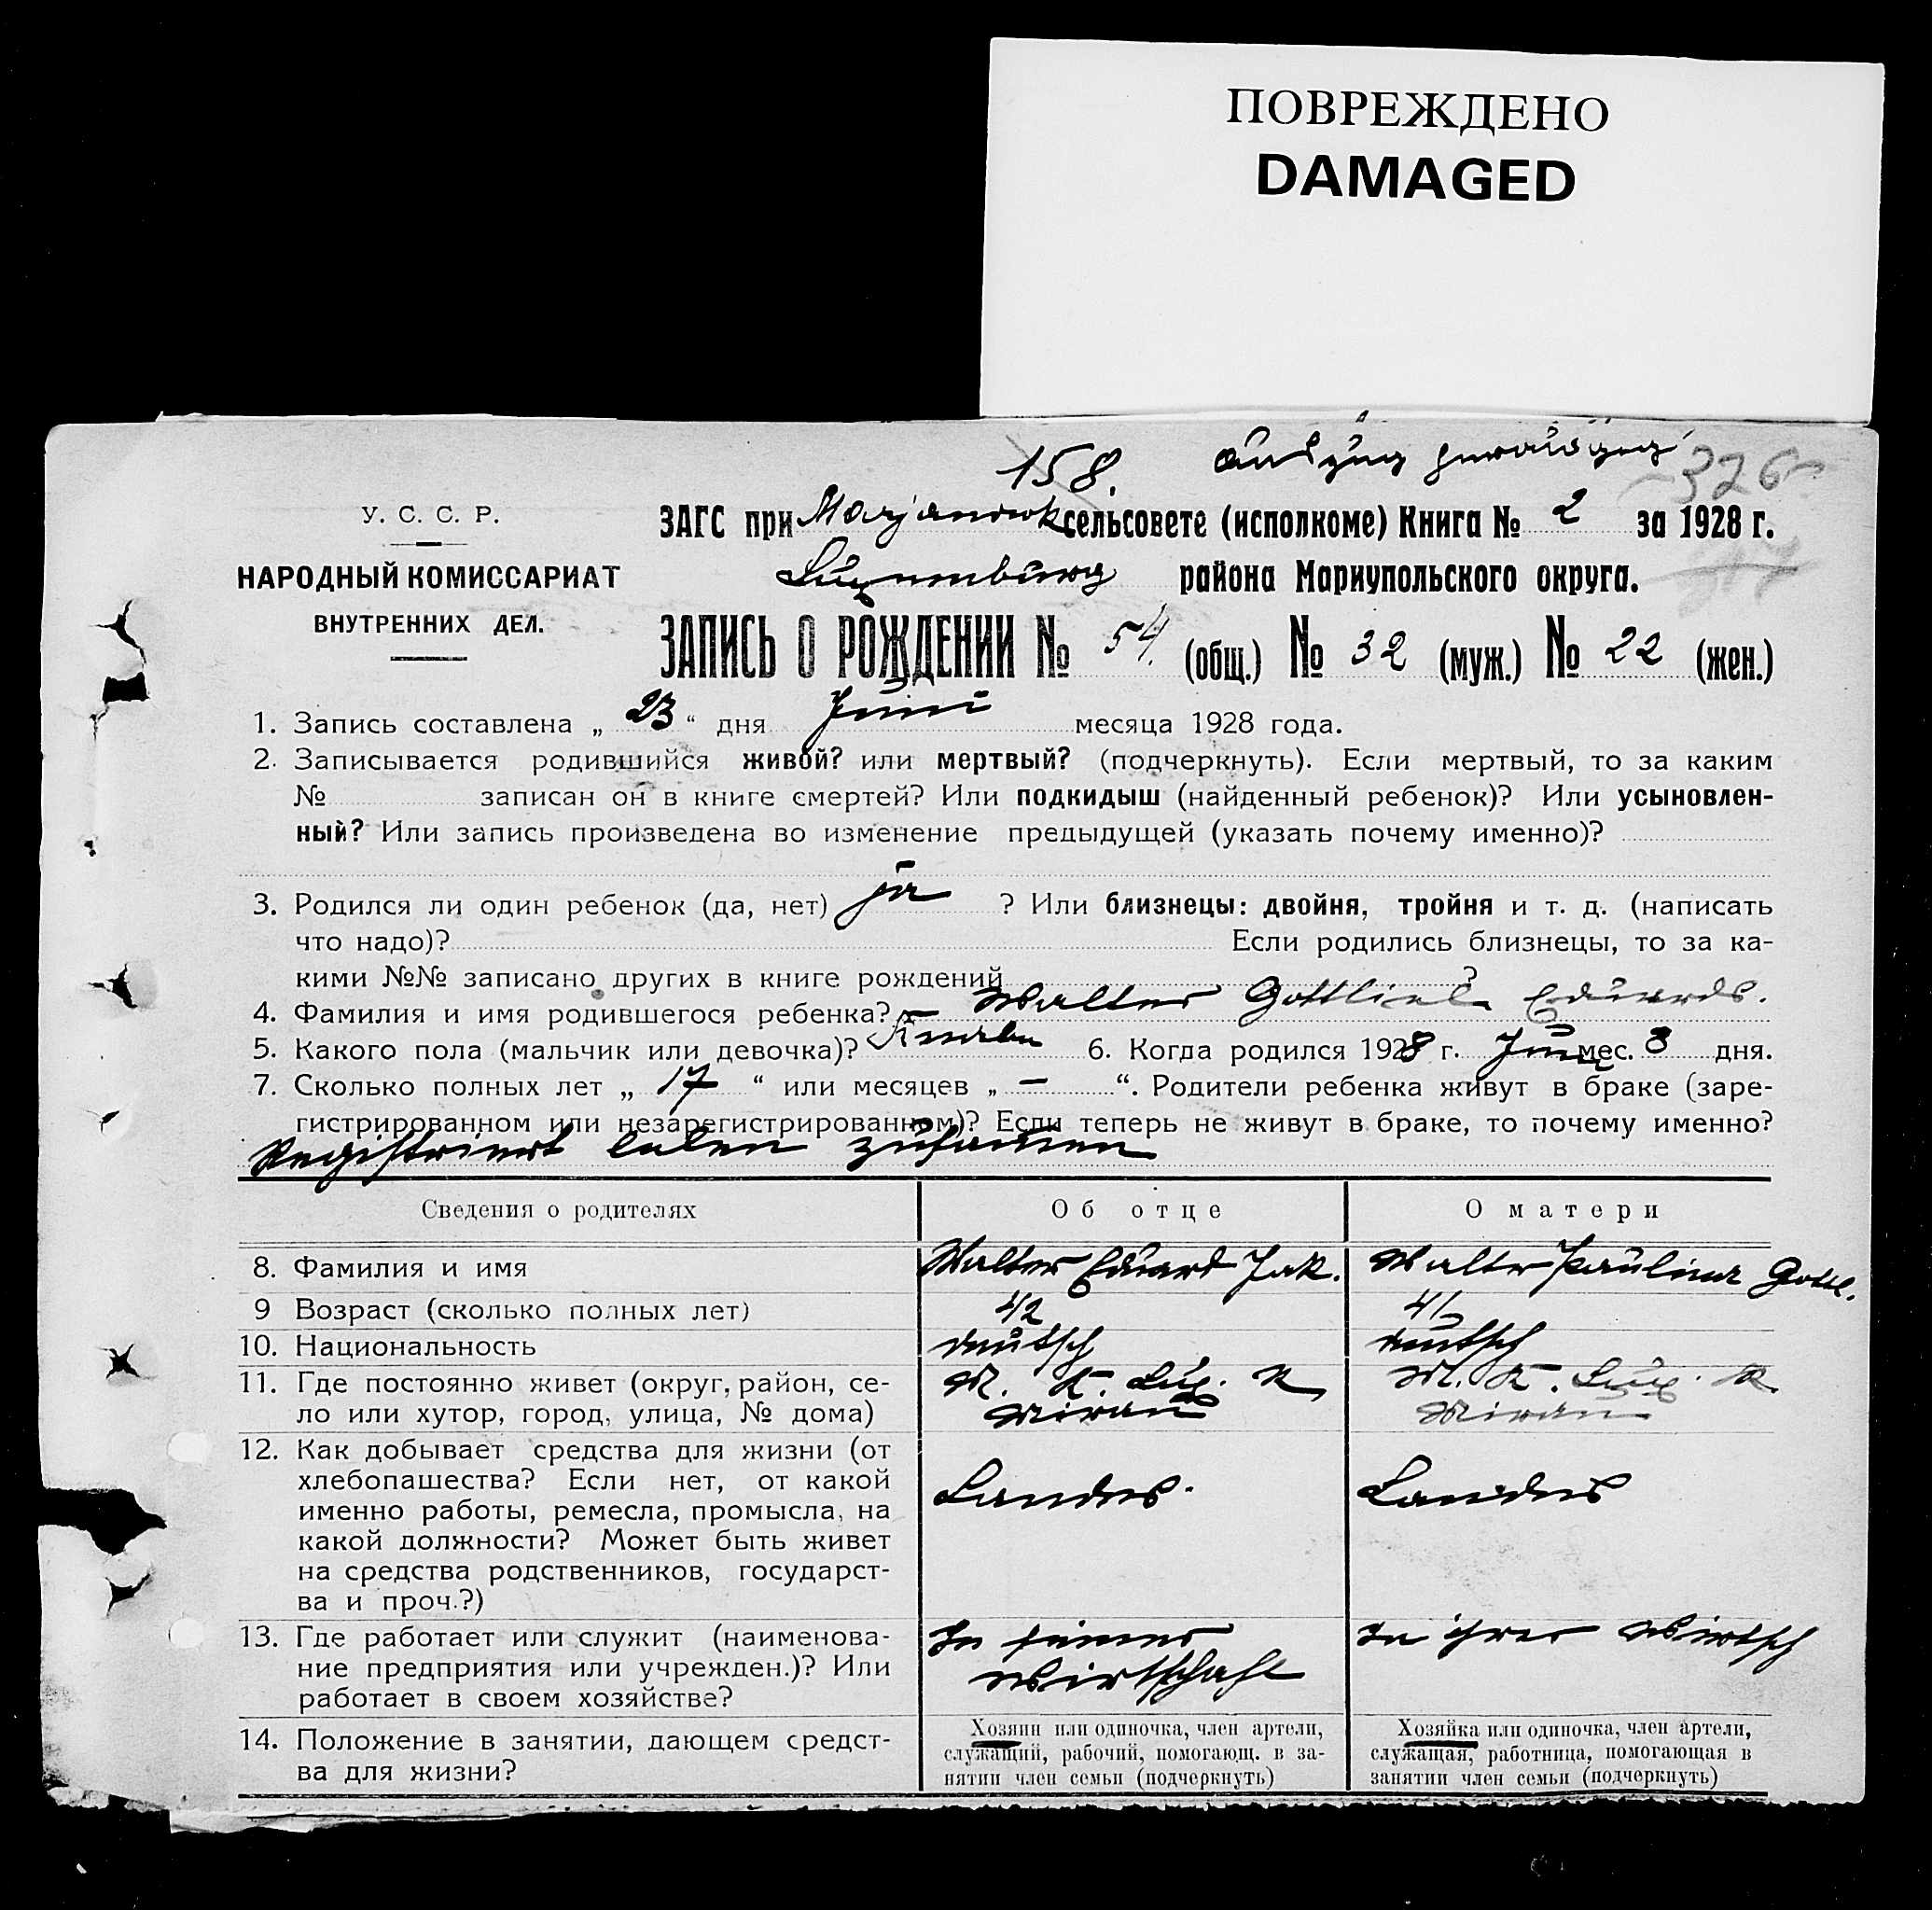 ПОВРЕЖДЕНО
DAMAGED
158.
326
У. С. С. Р.
НАРОДНЫЙ КОМИССАРИАТ
ВНУТРЕННИХ ДЕЛ.
ЗАГС при Marjanowk сельсовете (исполкоме) Книга № 2 за 1928 г.
Luxemburg района Мариупольского округа.
ЗАПИСЬ О РОЖДЕНИИ № 54. (общ.) № 32 (муж.) № 22 (жен.)
1. Запись составлена „ 23 “ дня Juni месяца 1928 года.
2. Записывается родившийся живой? или мертвый? (подчеркнуть). Если мертвый, то за каким
№ записан он в книге смертей? Или подкидыш (найденный ребенок)? Или усыновлен-
ный? Или запись произведена во изменение предыдущей (указать почему именно)?
3. Родился ли один ребенок (да, нет) ja ? Или близнецы: двойня, тройня и т. д. (написать
что надо)? Если родились близнецы, то за ка-
кими №№ записано других в книге рождений ?
4. Фамилия и имя родившегося ребенка? Walter Gottlieb Eduards.
5. Какого пола (мальчик или девочка)? Knabe 6. Когда родился 1928 г. Juni мес. 8 дня.
7. Сколько полных лет „ 17 “ или месяцев „ — “. Родители ребенка живут в браке (заре-
гистрированном или незарегистрированном)? Если теперь не живут в браке, то почему именно?
Registriert leben zusamen
Сведения о родителях
Об отце
О матери
8. Фамилия и имя
Walter Eduard Jak.
Walter Paulina Gottl.
9 Возраст (сколько полных лет)
42
41
10. Национальность
deutsch
deutsch
11. Где постоянно живет (округ, район, се-
ло или хутор, город, улица, № дома)
M. K. Lux. R
M. K. Lux. R
12. Как добывает средства для жизни (от
хлебопашества? Если нет, от какой
именно работы, ремесла, промысла, на
какой должности? Может быть живет
на средства родственников, государст-
ва и проч.?)
Landw.
13. Где работает или служит (наименова-
ние предприятия или учрежден.)? Или
работает в своем хозяйстве?
In seiner
Wirtschaft
In ihrer Wirtsch
14. Положение в занятии, дающем средст-
ва для жизни?
Хозяин или одиночка, член артели,
служащий, рабочий, помогающ. в за-
нятии член семьи (подчеркнуть)
Хозяйка или одиночка, член артели,
служащая, работница, помогающая в
занятии член семьи (подчеркнуть)